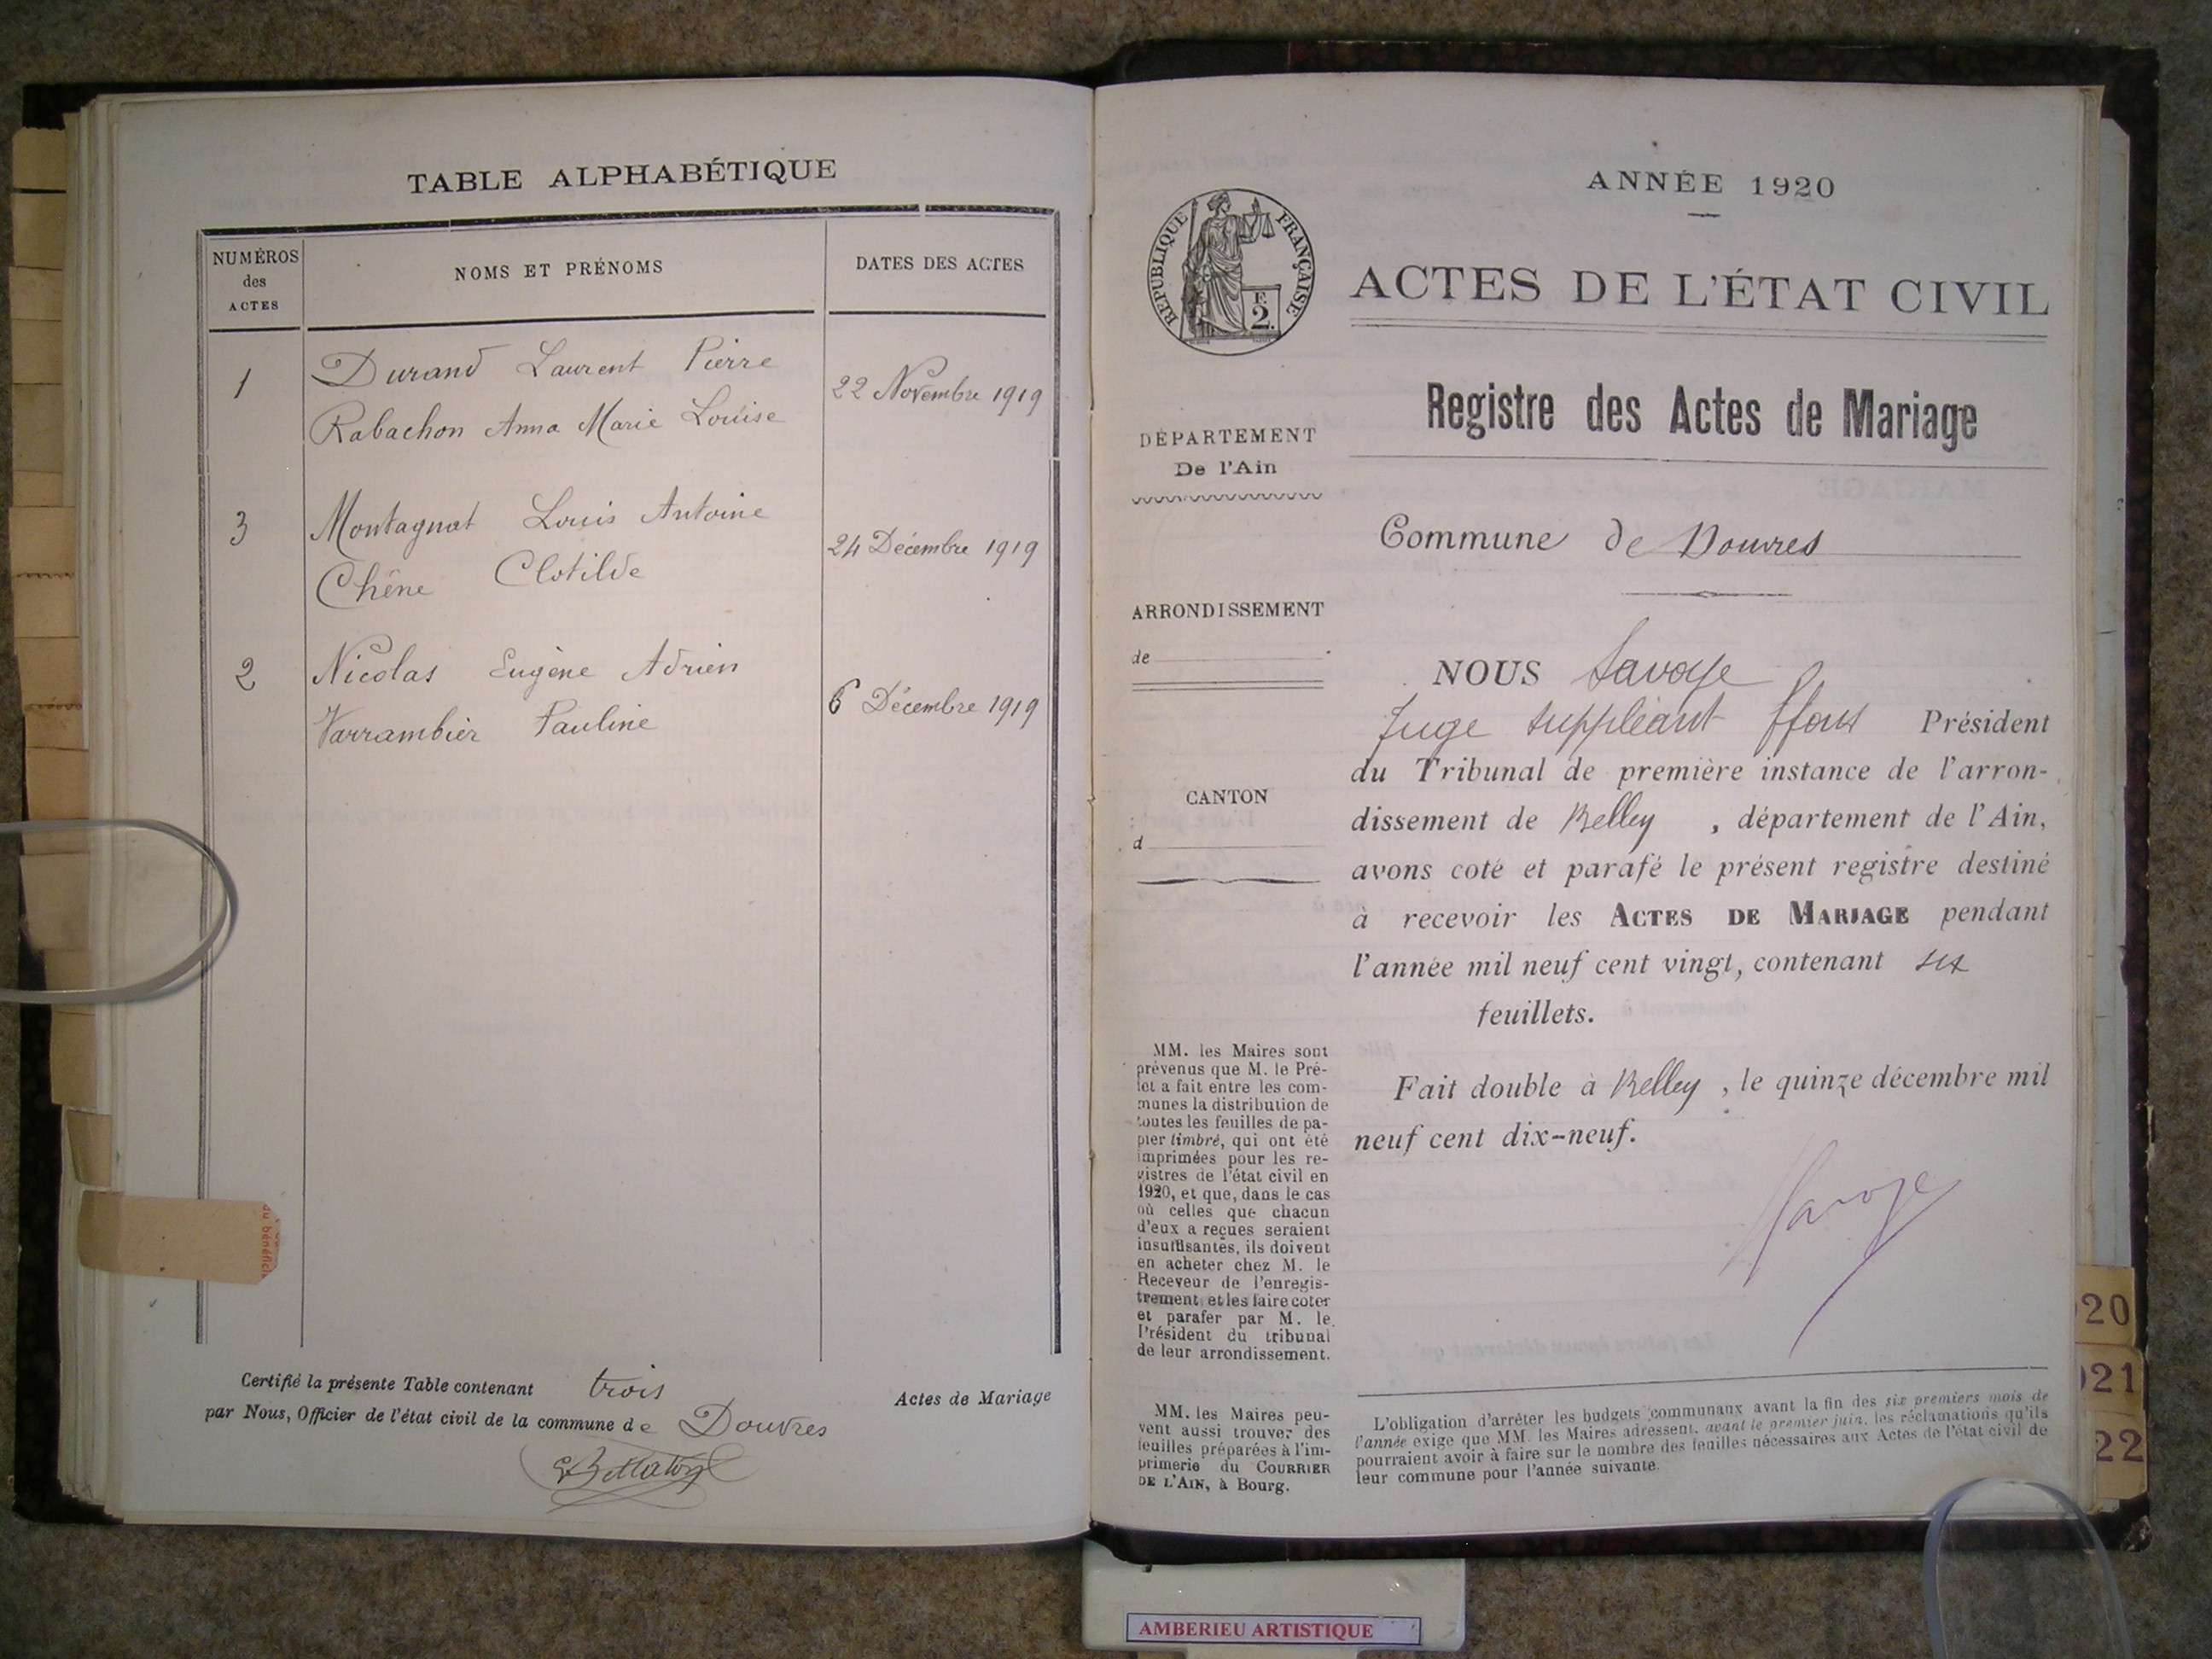 TABLE ALPHABÉTIQUE
NUMÉROS
des
ACTES
NOMS ET PRÉNOMS
DATES DES ACTES
1
Durand Laurent Pierre
Rabachon Anna Marie Louise
22 Novembre 1919
3
Montagnat Louis Antoine
Chêne Clotilde
24 Décembre 1919
2
Nicolas Eugène Adrien
Varrambier Pauline
6 Décembre 1919
Certifié la présente Table contenant trois Actes de Mariage
par Nous, Officier de l'état civil de la commune de Douvres
du bénéfici
ANNÉE 1920
RÉPUBLIQUE FRANÇAISE
F.
2.
ACTES DE L'ÉTAT CIVIL
Registre des Actes de Mariage
DÉPARTEMENT
De l'Ain
Commune de Douvres
ARRONDISSEMENT
de
CANTON
d
NOUS Savoye
Juge suppléant ffons Président
du Tribunal de première instance de l'arron-
dissement de Belley , département de l'Ain,
avons coté et parafé le présent registre destiné
à recevoir les ACTES DE MARIAGE pendant
l'année mil neuf cent vingt, contenant six
feuillets.
Fait double à Belley , le quinze décembre mil
neuf cent dix-neuf.
Savoye
MM. les Maires sont
prévenus que M. le Pré-
fet a fait entre les com-
munes la distribution de
toutes les feuilles de pa-
pier timbré, qui ont été
imprimées pour les re-
gistres de l'état civil en
1920, et que, dans le cas
où celles que chacun
d'eux a reçues seraient
insuffisantes, ils doivent
en acheter chez M. le
Receveur de l'enregis-
trement et les faire coter
et parafer par M. le
Président du tribunal
de leur arrondissement.
MM. les Maires peu-
vent aussi trouver des
feuilles préparées à l'im-
primerie du COURRIER
DE L'AIN, à Bourg.
L'obligation d'arrêter les budgets communaux avant la fin des six premiers mois de
l'année exige que MM. les Maires adressent, avant le premier juin, les réclamations qu'ils
pourraient avoir à faire sur le nombre des feuilles nécessaires aux Actes de l'état civil de
leur commune pour l'année suivante.
20
21
22
AMBERIEU ARTISTIQUE